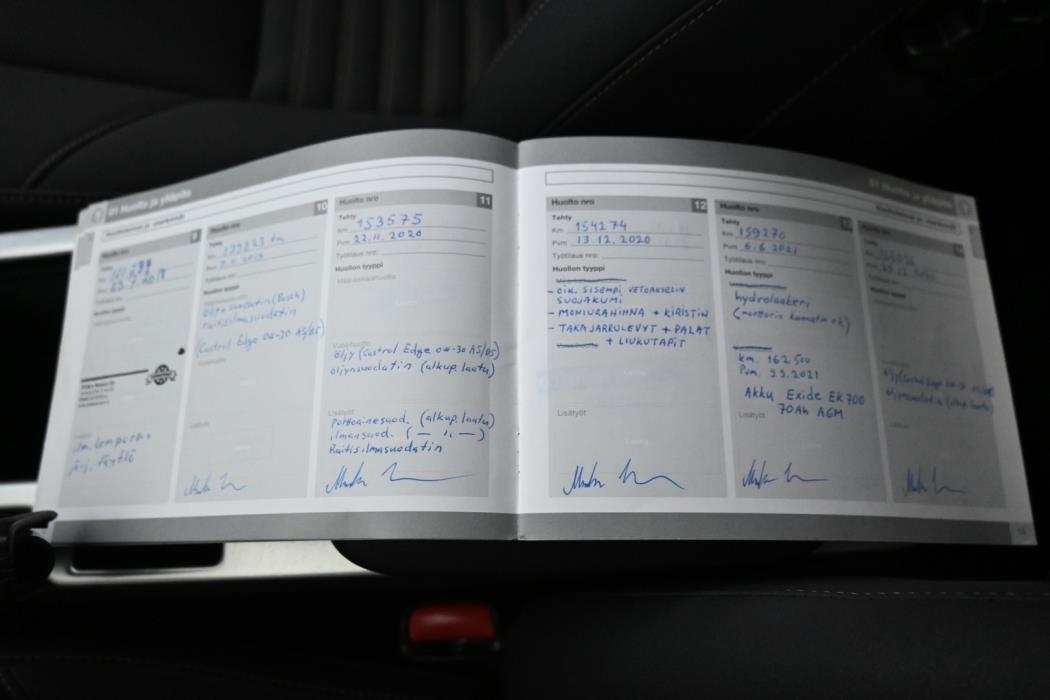 01 Huolto ja ylläpito
9
Huolto nro
Tehty
Km
Pvm 23.7.2018
Työtilaus nro:
Huollon tyyppi
ilm.tempora.
järj. täyttö
10
Huolto nro
Tehty
Km
Pvm
Työtilaus nro:
Huollon tyyppi
Öljynsuodatin (Bosch)
Raitisilmasuodatin
(Castrol Edge 0W-30 A5/B5)
Lisätyöt
11
Huolto nro
Tehty
Km 153575
Pvm 22.11.2020
Työtilaus nro:
Huollon tyyppi
Määräaikaishuolto
Vuosihuolto
Öljy (Castrol Edge 0W-30 A5/B5)
Öljynsuodatin (alkup. laatu)
Lisätyöt
Polttoainesuod. (alkup. laatu)
ilmansuod. (— ,, —)
Raitisilmasuodatin
01 Huolto ja ylläpito
12
Huolto nro
Tehty
Km 154274
Pvm 13.12.2020
Työtilaus nro:
Huollon tyyppi
- OIK. SISEMPI VETOAKSELIN
SUOJAKUMI
- MONIURAHIHNA + KIRISTIN
- TAKAJARRULEVYT + PALAT
+ LIUKUTAPIT
Lisätyöt
13
Huolto nro
Tehty
Km 159270
Pvm 6.6.2021
Työtilaus nro:
Huollon tyyppi
hydrolaakeri
(moottorin kannatin oik)
km. 162500
Pvm. 9.9.2021
Akku Exide EK700
70Ah AGM
Lisätyöt
Huolto nro
Tehty
Km
Pvm
Työtilaus nro:
Huollon tyyppi
Öljy (Castrol Edge 0W-30 A5/B5)
Öljynsuodatin (alkup. laatu)
Lisätyöt